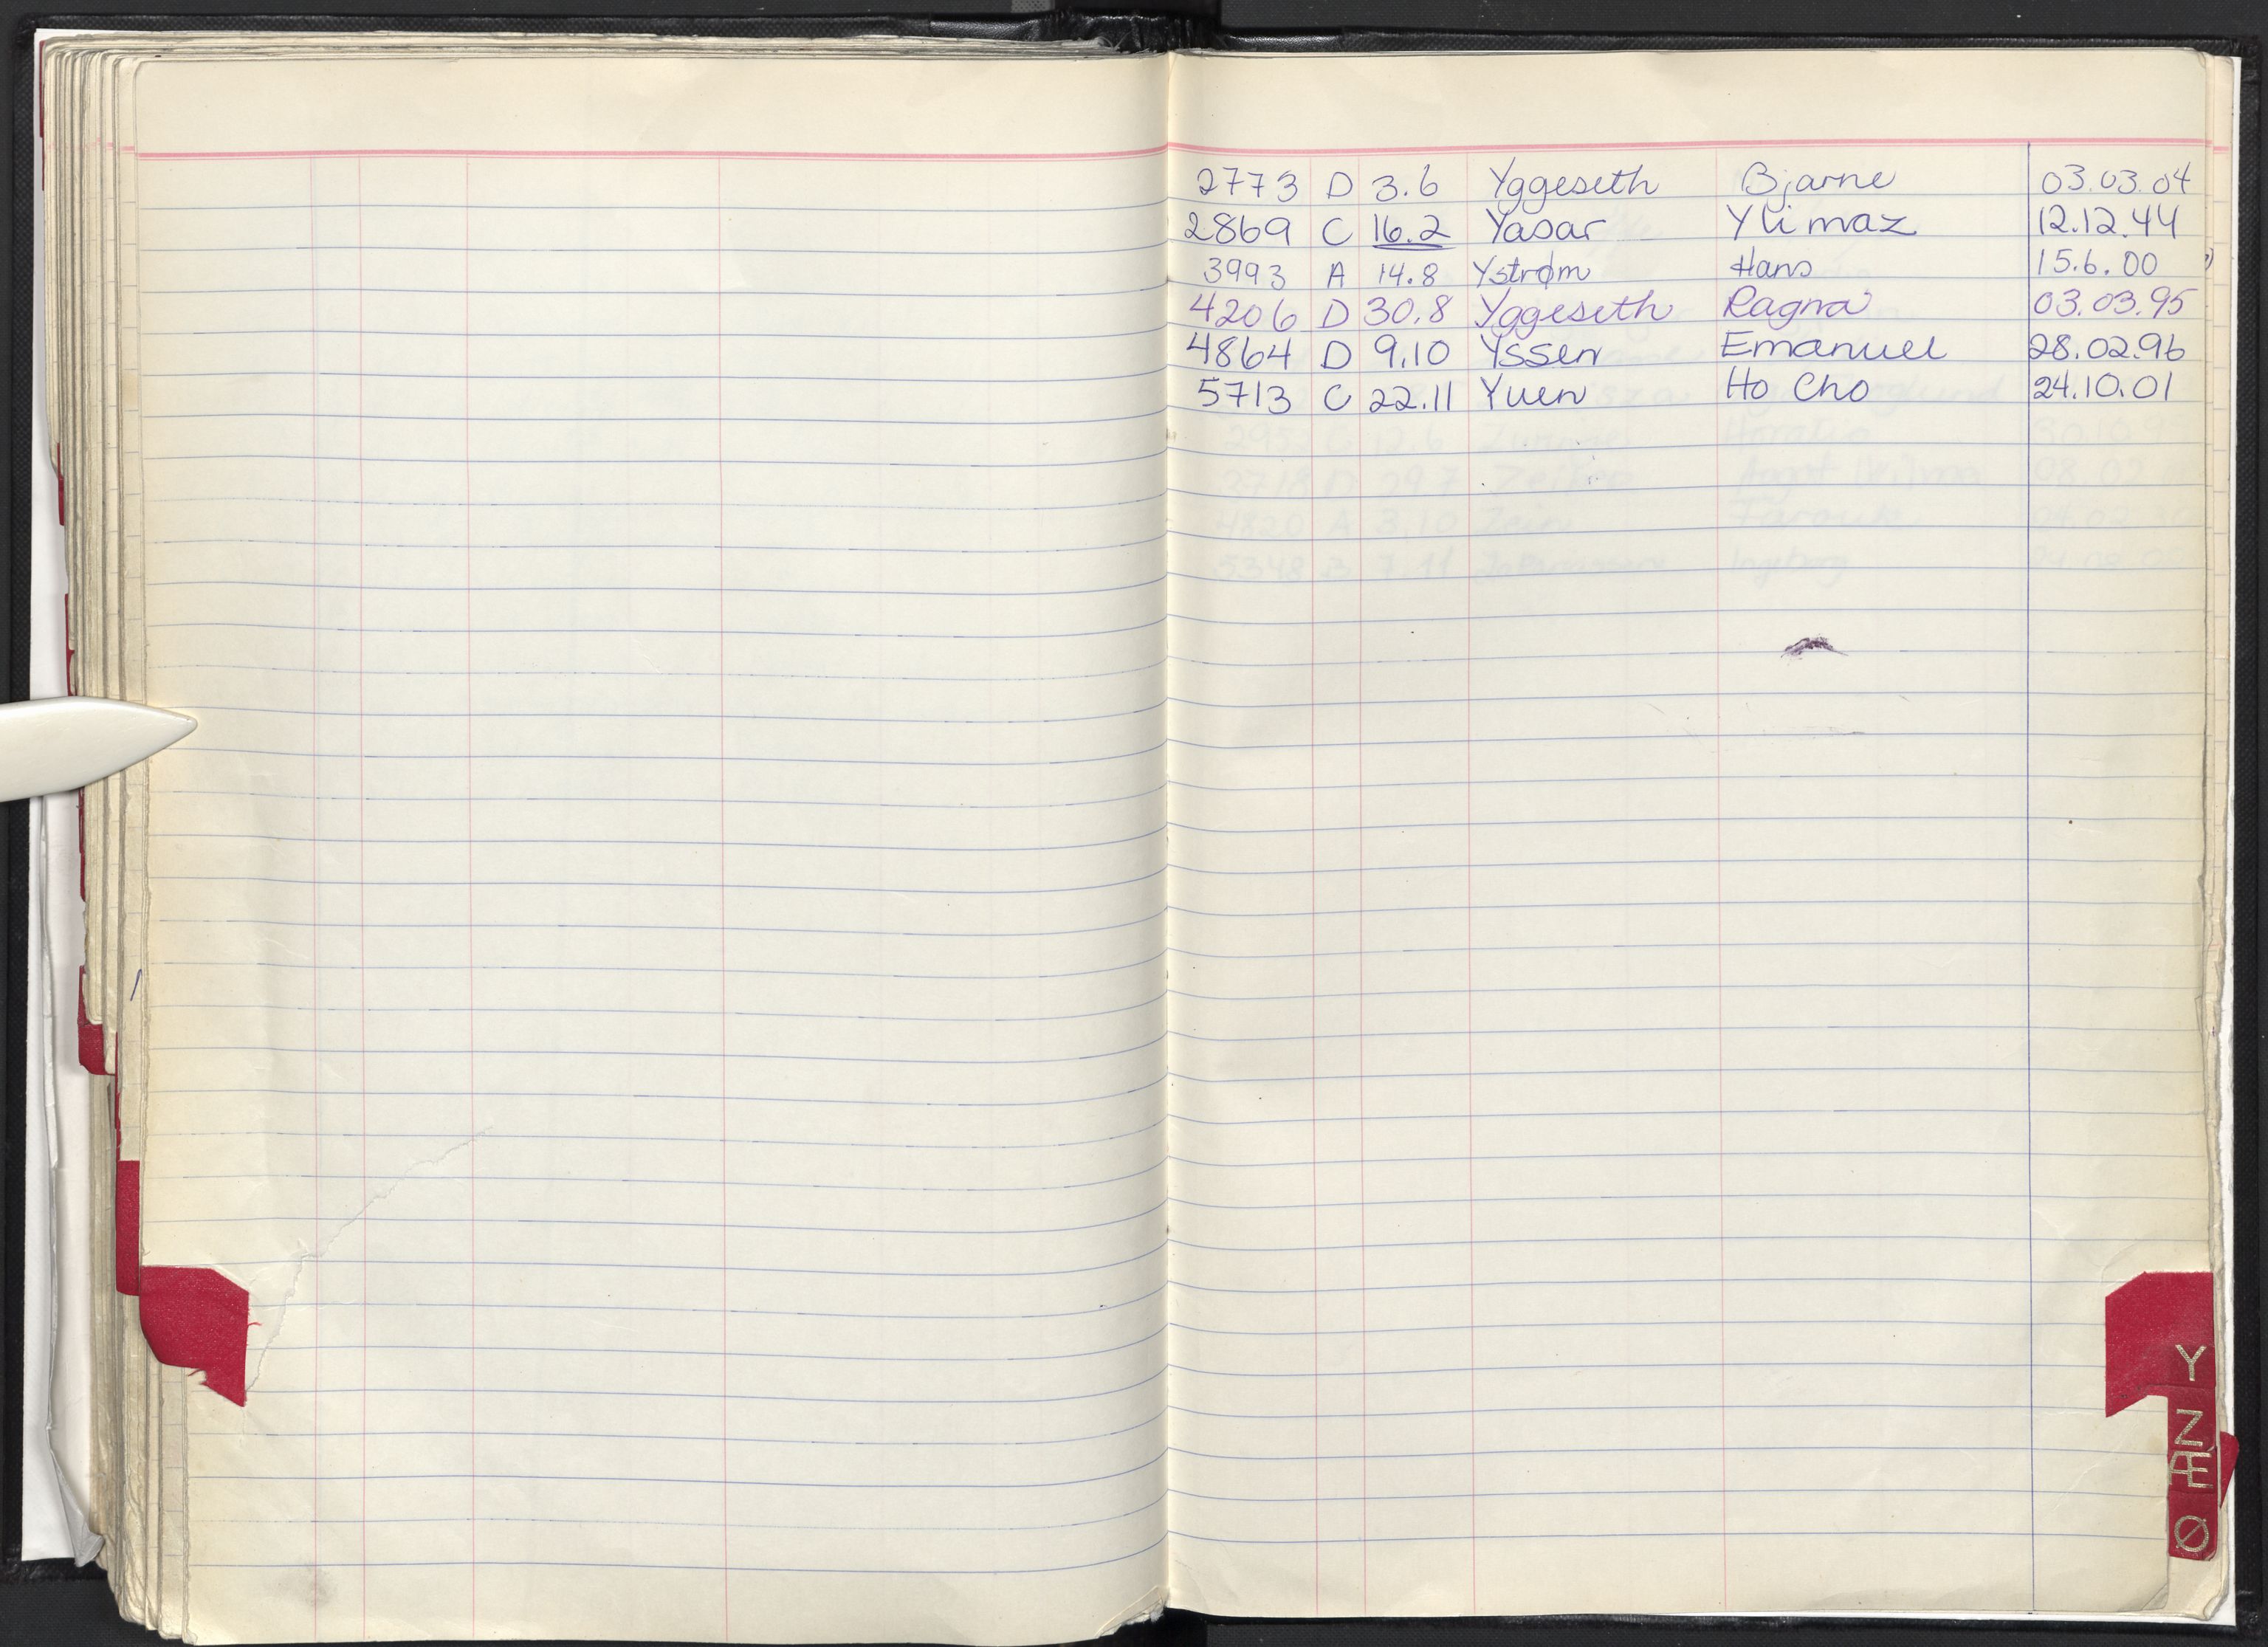 2773 D 3.6 Yggeseth Bjarne 03.03.04
2869 C 16.2 Yasar Ylimaz 12.12.44
3993 A 14.8 Ystrøm Hans 15.6.00
4206 D 30.8 Yggeseth Ragna 03.03.95
4864 D 9.10 Yssen Emanuel 28.02.96
5713 C 22.11 Yuen Ho Cho 24.10.01
Y
Z
Æ
Ø